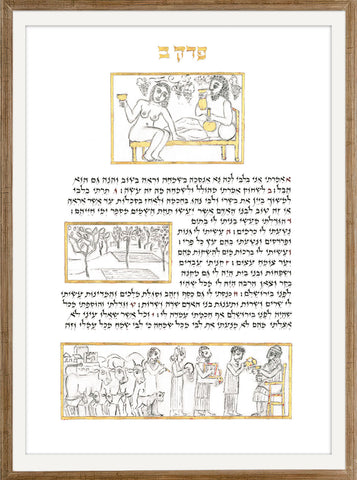 פרק ב
א אמרתי אני בלבי לכה נא אנסכה בשמחה וראה בטוב והנה גם הוא
הבל: ב לשחוק אמרתי מהולל ולשמחה מה זה עשה: ג תרתי בלבי
למשוך ביין את בשרי ולבי נהג בחכמה ולאחז בסכלות עד אשר אראה
אי זה טוב לבני האדם אשר יעשו תחת השמים מספר ימי חייהם:
ד הגדלתי מעשי בניתי לי בתים
נטעתי לי כרמים: ה עשיתי לי גנות
ופרדסים ונטעתי בהם עץ כל פרי: ו
עשיתי לי ברכות מים להשקות מהם
יער צומח עצים: ז קניתי עבדים
ושפחות ובני בית היה לי גם מקנה
בקר וצאן הרבה היה לי מכל שהיו
לפני בירושלם: ח כנסתי לי גם כסף וזהב וסגלת מלכים והמדינות עשיתי
לי שרים ושרות ותענגות בני האדם שדה ושדות: ט וגדלתי והוספתי מכל
שהיה לפני בירושלם אף חכמתי עמדה לי: י וכל אשר שאלו עיני לא
אצלתי מהם לא מנעתי את לבי מכל שמחה כי לבי שמח מכל עמלי וזה